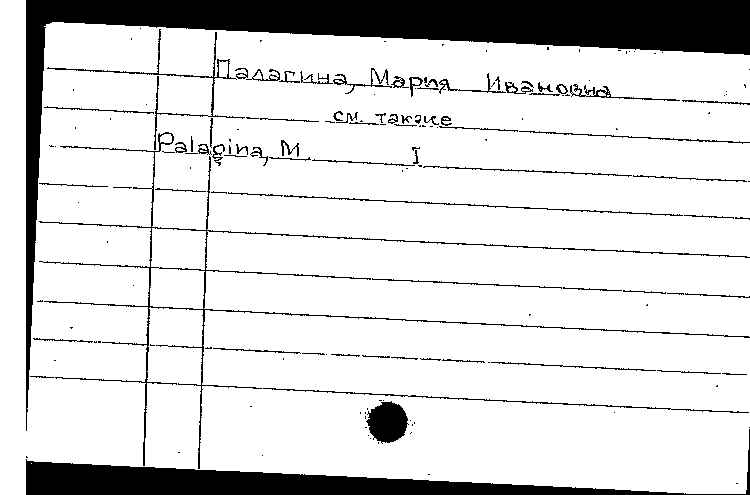 Палагина, Мария Ивановна
см. также
Palagina, M. I